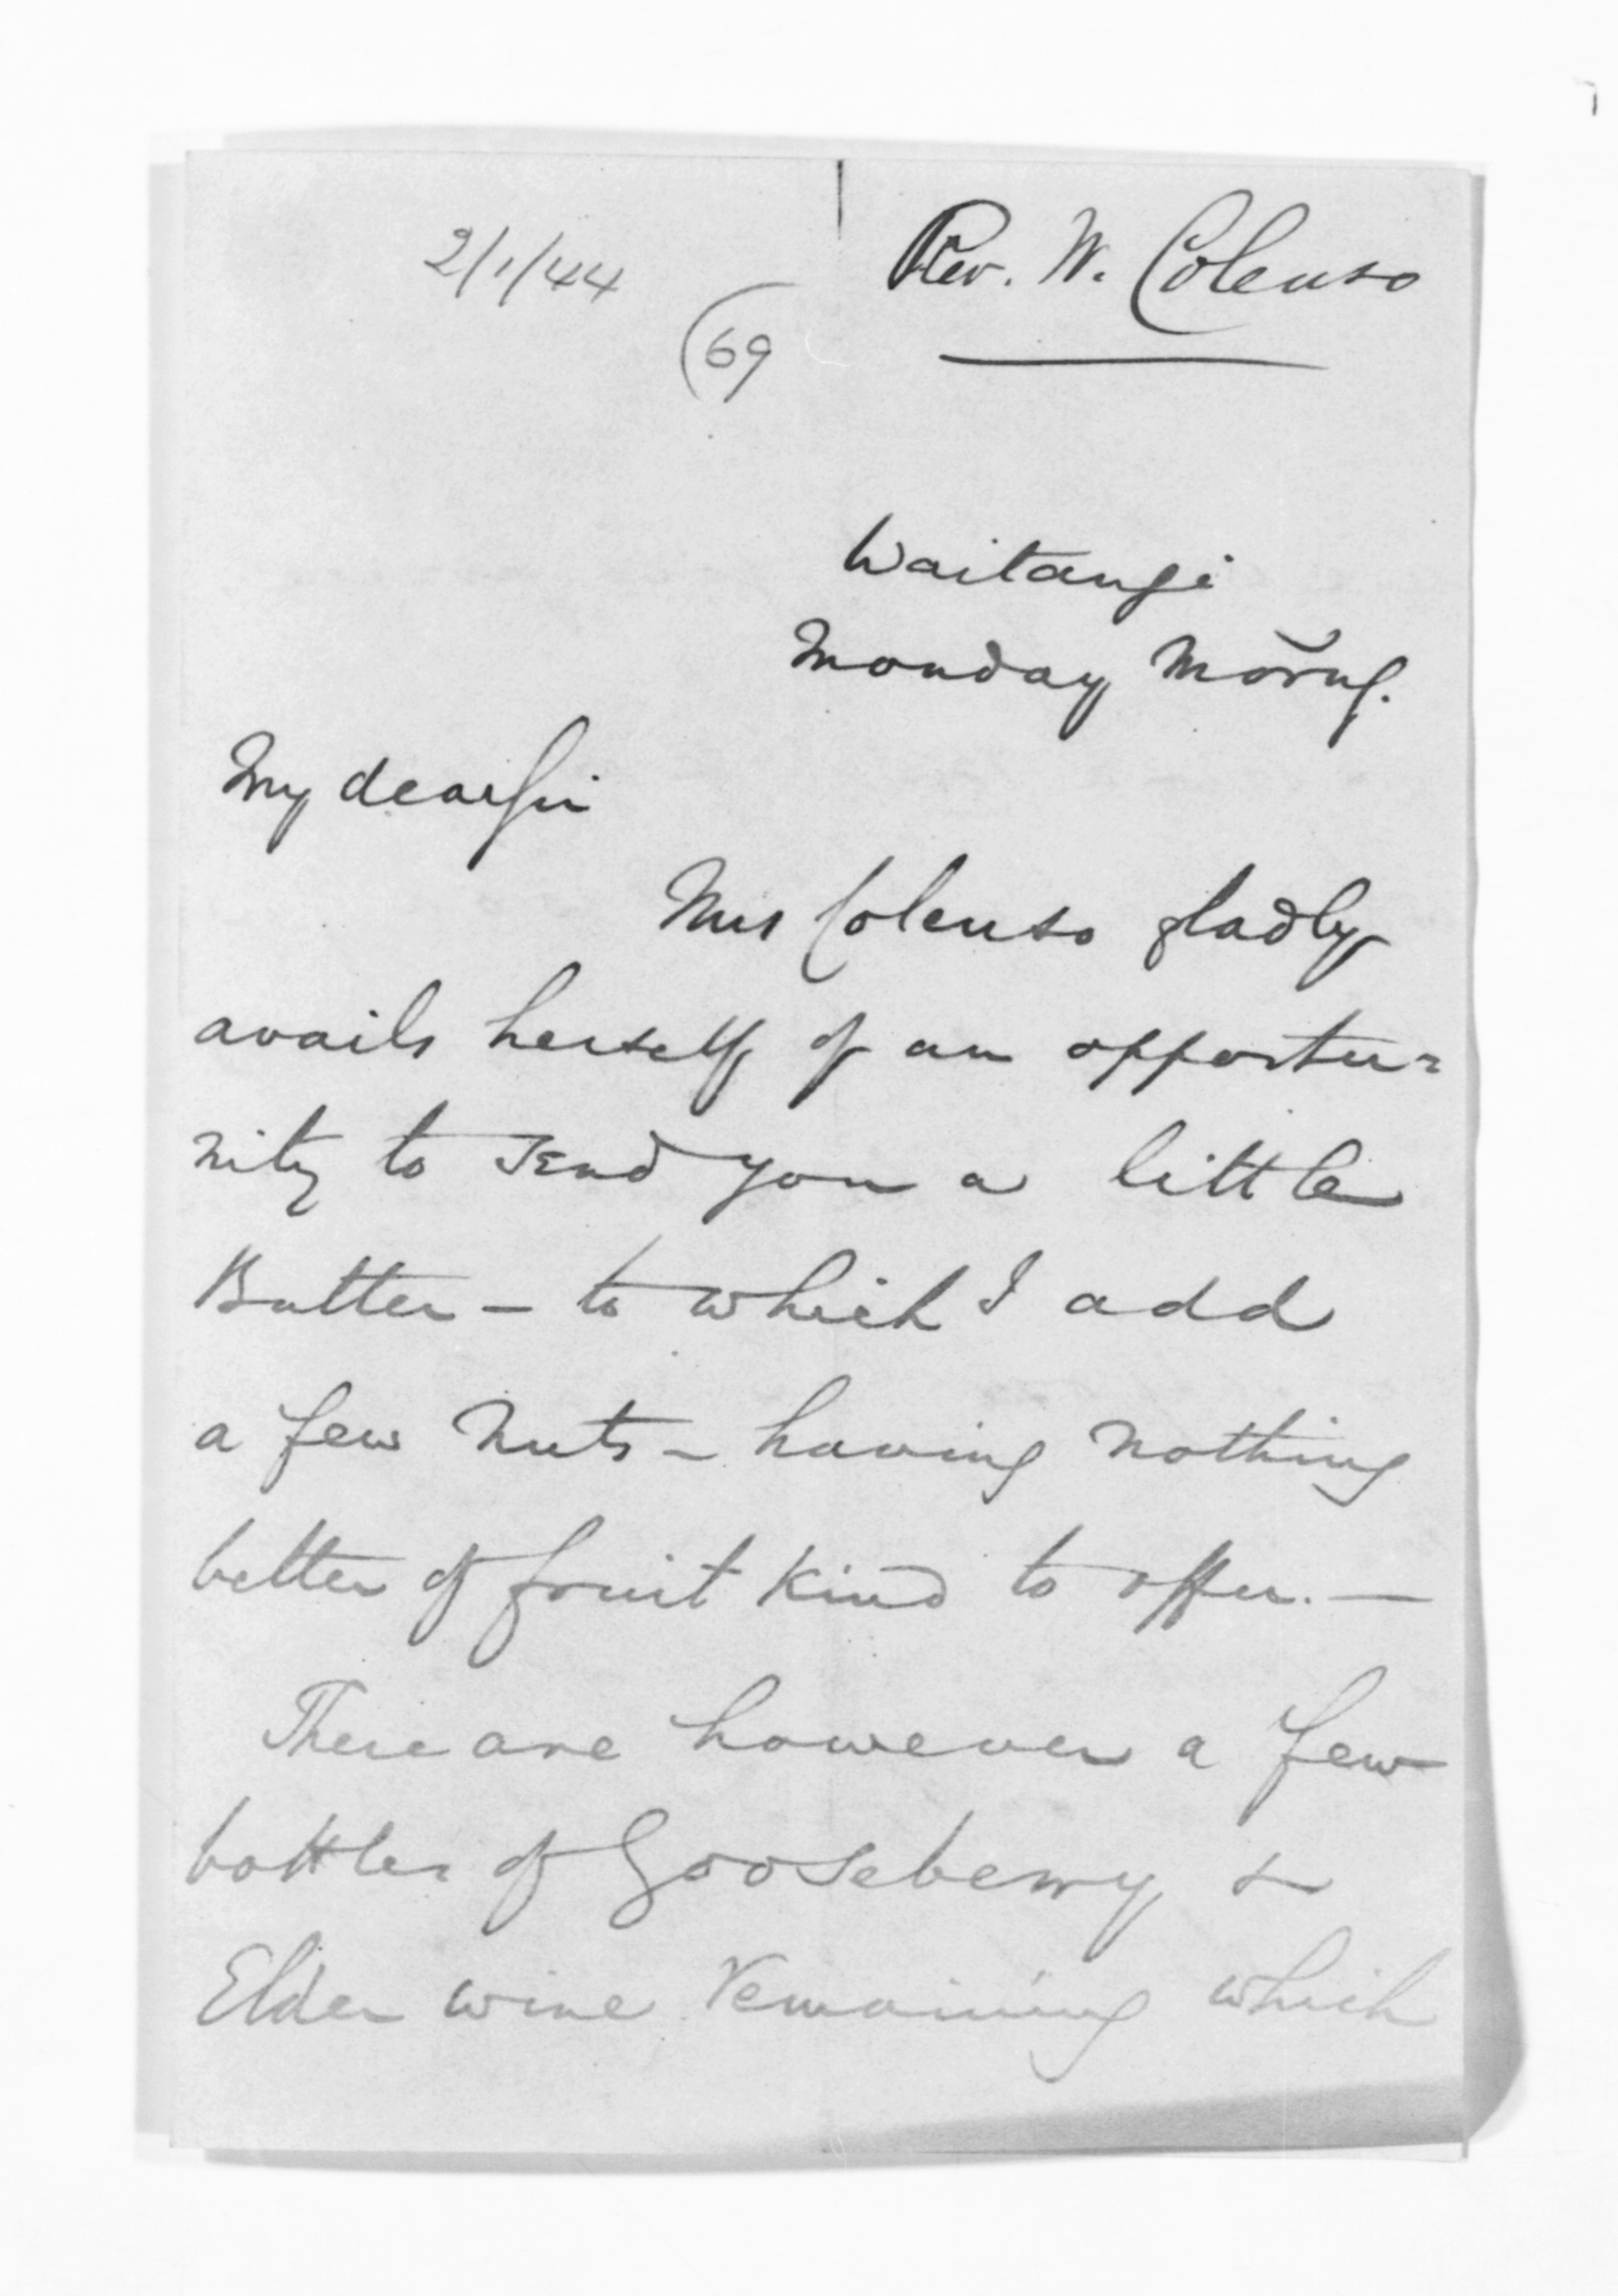 2/1/44
Rev. W. Colenso
69
Waitangi
Monday Morng.
My dear Sir
Mrs Colenso gladly
avails herself of an opportu=
nity to send you a little
Butter – to which I add
a few Nuts – having nothing
better of fruit kind to offer. —
There are however a few
bottles of Gooseberry &
Elder wine remaining which